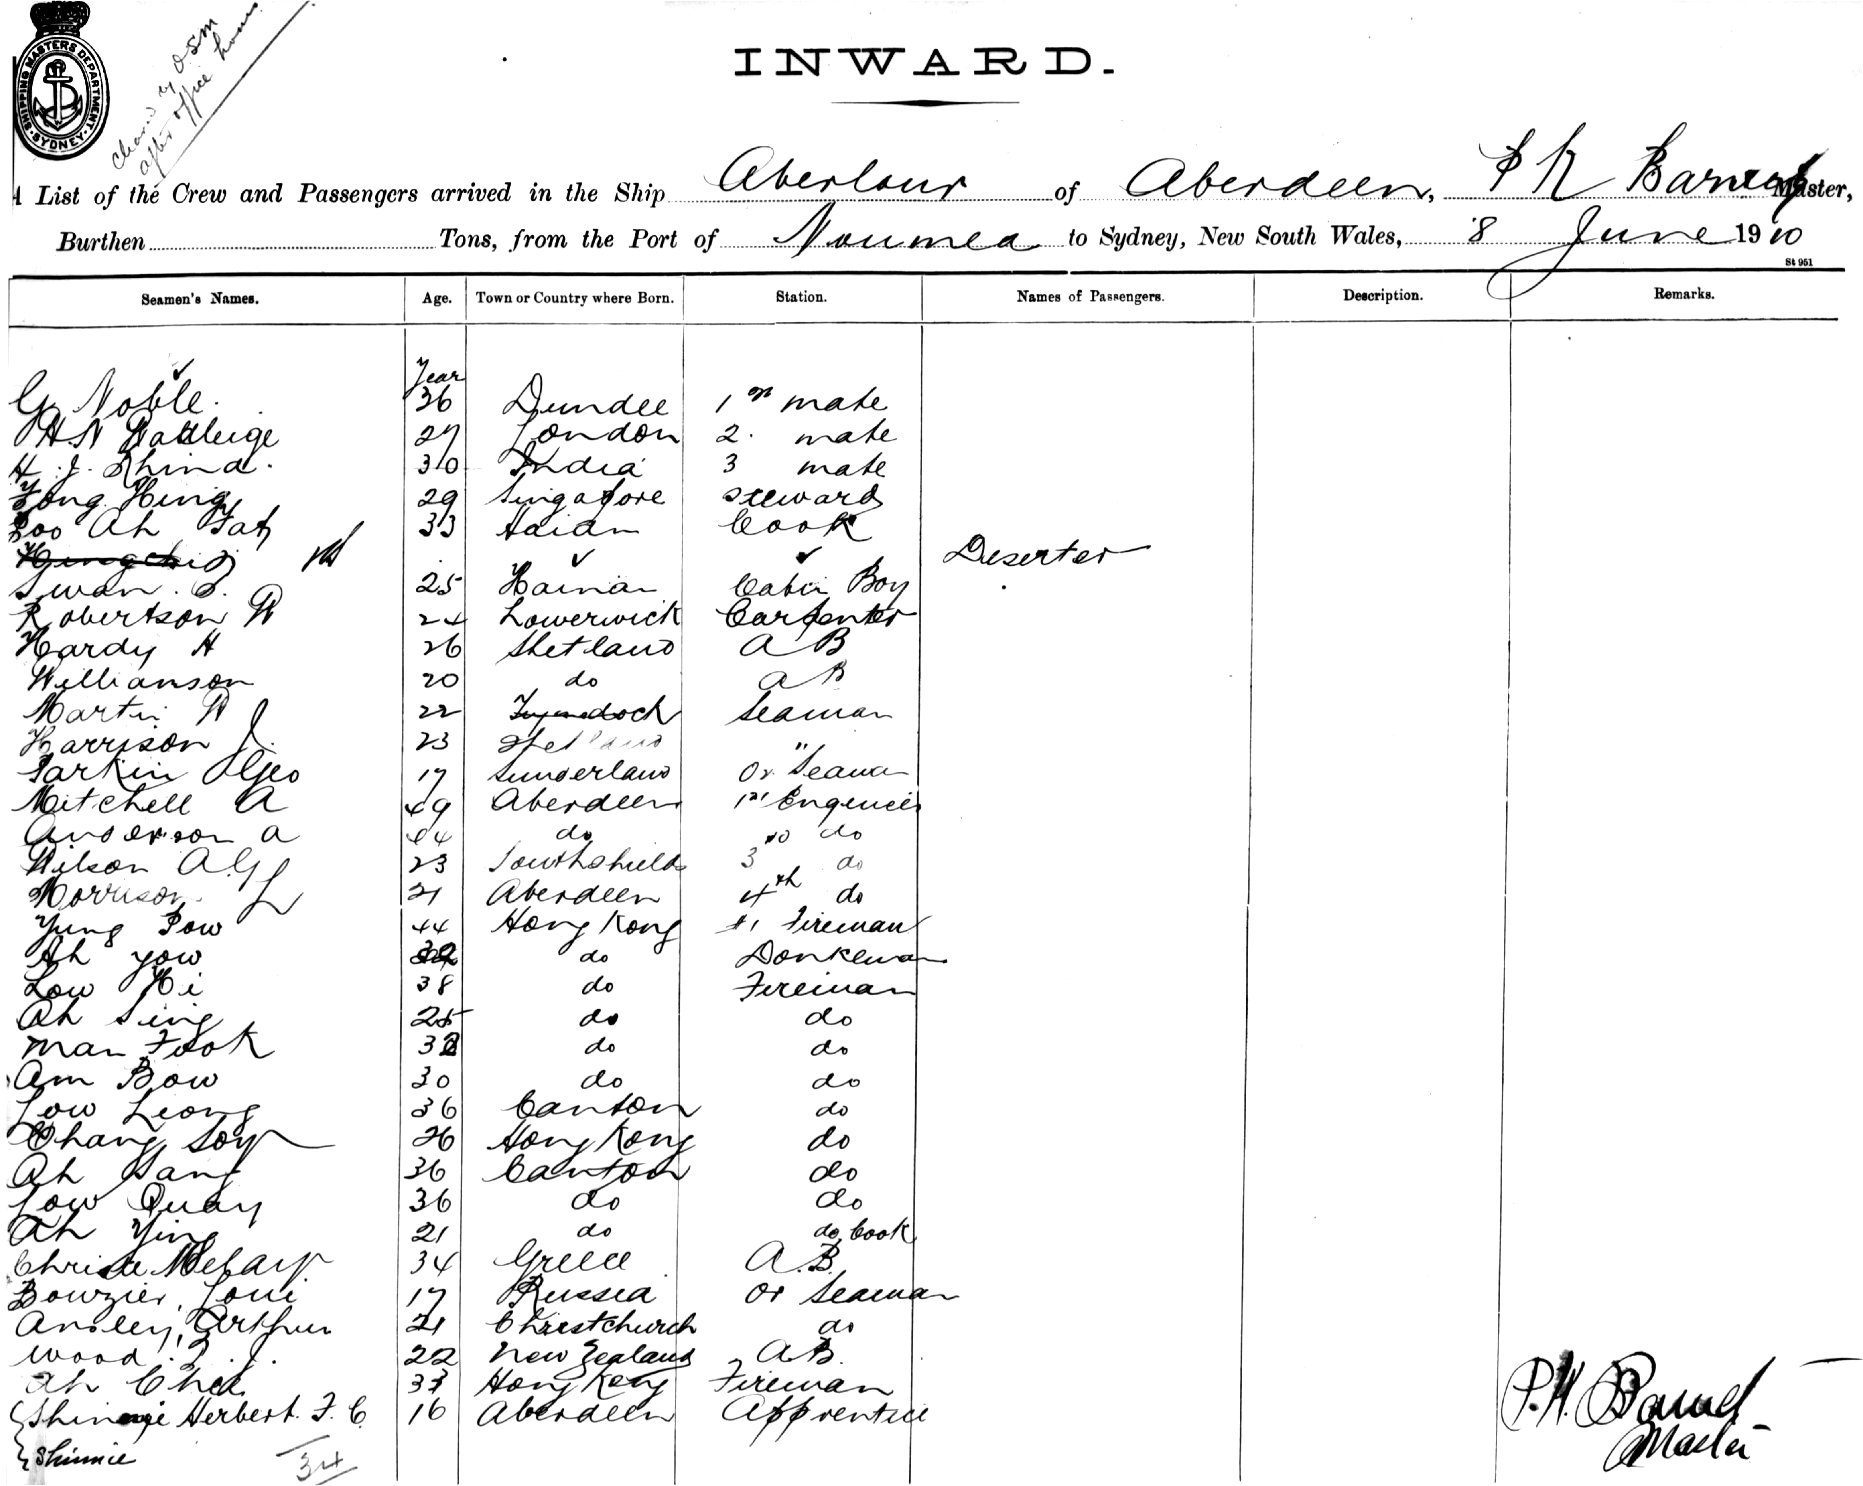 SHIPPING MASTERS DEPARTMENT
SYDNEY
after office hours
INWARD.
A List of the Crew and Passengers arrived in the Ship Aberlour of Aberdeen, Master,
Burthen Tons, from the Port of Noumea to Sydney, New South Wales, 8 June 1910
St 951
Seamen's Names. Age. Town or Country where Born. Station. Names of Passengers. Description. Remarks.
Year
G Noble. 36 Dundee 1st mate
27 London 2. mate
H. J. Rhind. 30 India 3 mate
Fong Hing 29 Singapore steward
Ah 33 Cook
Deserter
Swan. S. 25 Hainan Cabin Boy
Robertson W 24 Lowerwick Carpenter
Hardy H 26 Shetland A B
Williamson 20 do A B
Martin W 22 Seaman
Harrison J. 23 Shetland "
Larkin Geo 17 Sunderland Or Seaman
Mitchell A 49 Aberdeen 1st Engineer
Anderson A 44 do do
Wilson A.G 23 Southshields 3 do
Morrison 21 Aberdeen 4th do
Yung Pow 44 Hong Kong Fireman
Ah yow do Donkeman
Low Hi 38 do Fireman
Ah Sing 25 do do
Man Fook do do
Am Bow 30 do do
Low Leong 36 Canton do
Chang Soy 26 Hong Kong do
Ah 36 Canton do
Low Quay 36 do do
Ah Ying 21 do do Cook
34 Greece A.B.
17 Russia Or Seaman
Ansley, Arthur 21 Christchurch do
Wood. 22 New Zealand A.B.
Ah 33 Hong Kong Fireman
Herbert. F. C. 16 Aberdeen Apprentice
Shinnie
34
Master